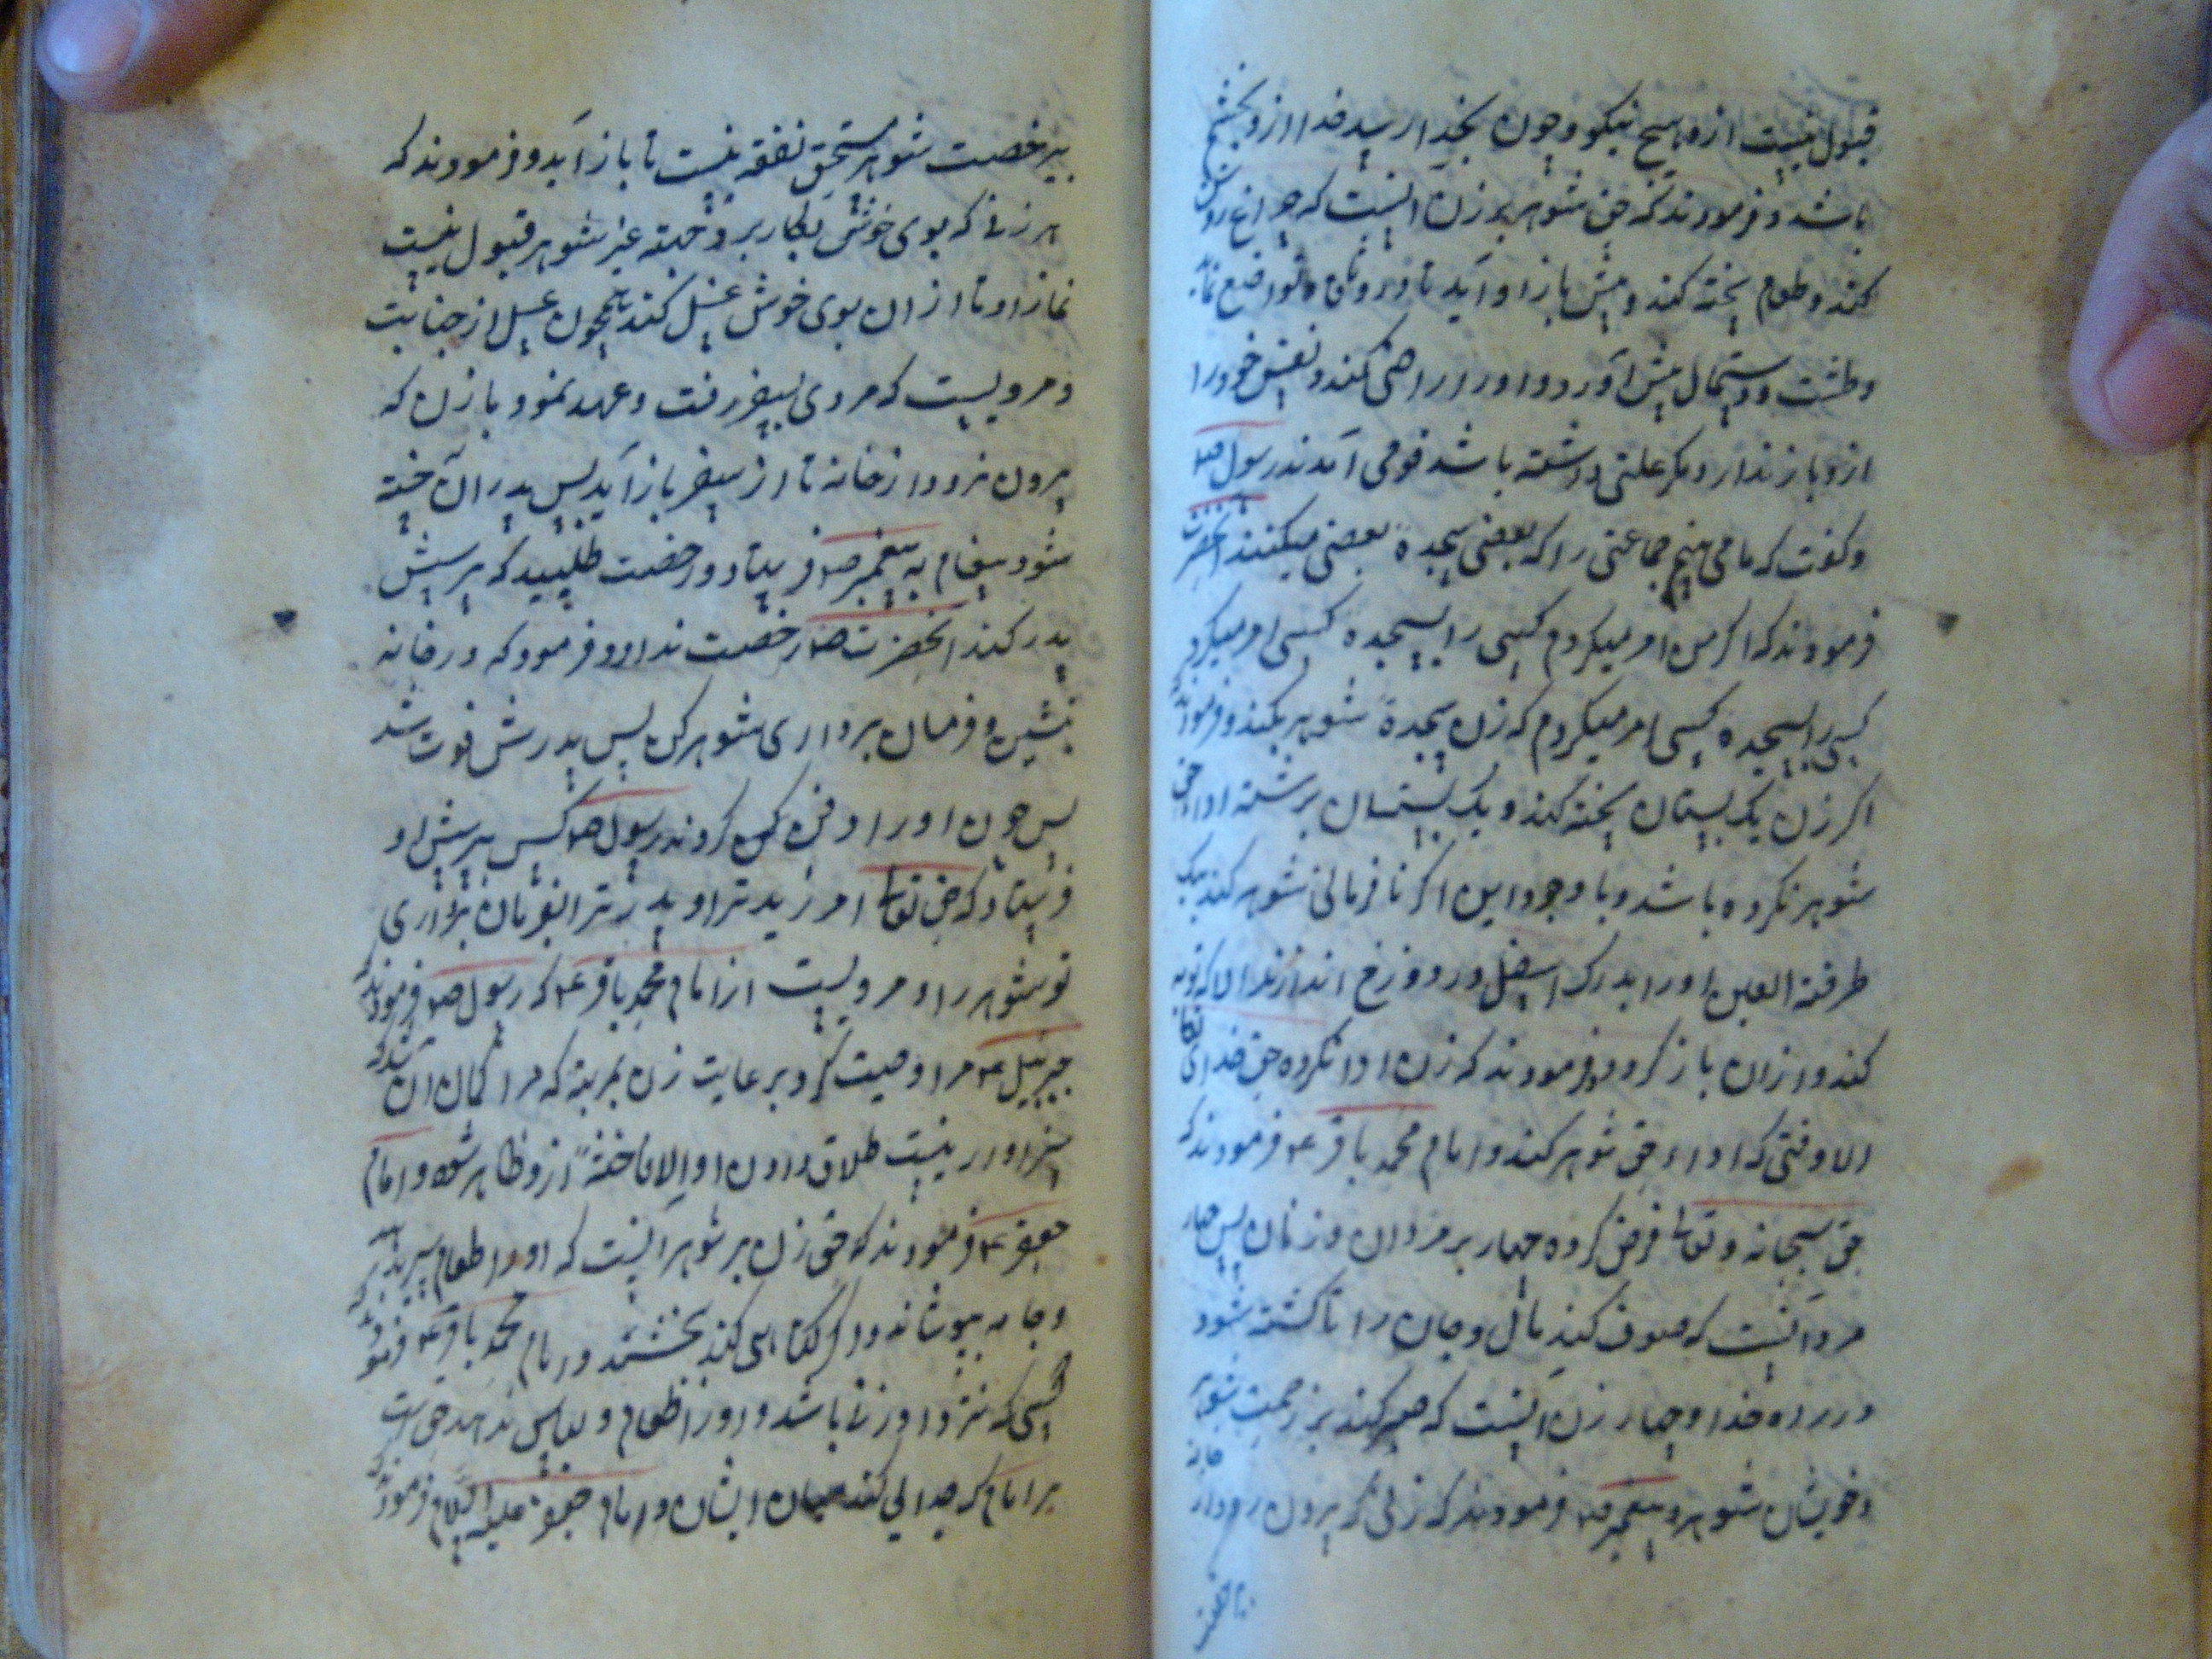 قبول نیست ازو هیچ نیکو و چون بخدا رسید خدا ازو بخشم
باشد و فرمودند که حق شوهر بر زن انست که چراغ روشن
کند و طعام پخته کند و پیش باز او آید تا در و تواضع نماید
و طشت و دستمال پیش آورد و او را راضی کند و نفس خود را
ازو باز ندارد مگر علتی داشته باشد قومی آمدند رسول ص
و گفت که ما می بینیم جماعتی را که بعضی سجده بعضی میکنند آنحضرت
فرمودند که اگر من امر میکردم کسی را بسجده کسی امر میکردم
کسی را بسجده کسی امر میکردم که زن سجده شوهر بکند و فرمودند
اگر زن یک پستان پخته کند و یک پستان برشته ادا حق
شوهر نکرده باشد و با وجود این اگر نافرمانی شوهر کند بیک
طرفة العین او را بدرک اسفل در دوزخ اندازند الا که توبه
کند و از ان باز گردد و فرمودند که زن ادا نکرده حق خدای تعالی
الا وقتی که اداء حق شوهر کند و امام محمد باقر ع فرمودند که
حق سبحانه و تعالی فرض کرده جهاد بر مردان و زنان پس جهاد
مرد آنست که صرف کند مال و جان را تا کشته شود
در راه خدا و جهاد زن آنست که صبر کند بر زحمت شوهر
و خویشان شوهر و پیغمبر ص فرمودند که زنی که بیرون رود از خانه
بی رخصت شوهر مستحق نفقه نیست تا باز آید و فرمودند که
هر زنی که بوی خوش بکار برد و جهته غیر شوهر قبول نیست
نماز او تا از ان بوی خوش غسل کند همچون غسل از جنابت
و مرویست که مردی بسفر رفت و عهد نمود با زن که
بیرون نرود از خانه تا از سفر باز آید پس پدر ان خسته
شود پیغام به پیغمبر ص فرستاد و رخصت طلبید که پرسش
پدر کند انحضرت ص رخصت نداد و فرمود که در خانه
بنشین و فرمان برداری شوهر کن پس پدرش فوت شد
پس چون او را دفن کردند رسول ص کس پیش او
فرستاد که حق تعالی امرزید ترا و پدر ترا بفرمان برداری
تو شوهر را و مرویست از امام محمد باقر ع که رسول ص فرمودند که
جبرئیل ع مرا وصیت کرد برعایت زن بمرتبه که مرا گمان ان شد که
سزاوار نیست طلاق دادن او الا فاحشه ازو ظاهر شود و امام
جعفر ع فرمودند که حق زن بر شوهر آنست که او را طعام سیر بدهد
و جامه بپوشاند و اگر گناهی کند بخشد و امام محمد باقر ع فرمود که
کسی که نزد او زن باشد و او را طعام و لباس ندهد حق است
بر امام که جدایی کند میان ایشان و امام جعفر علیه السلام فرمودند که